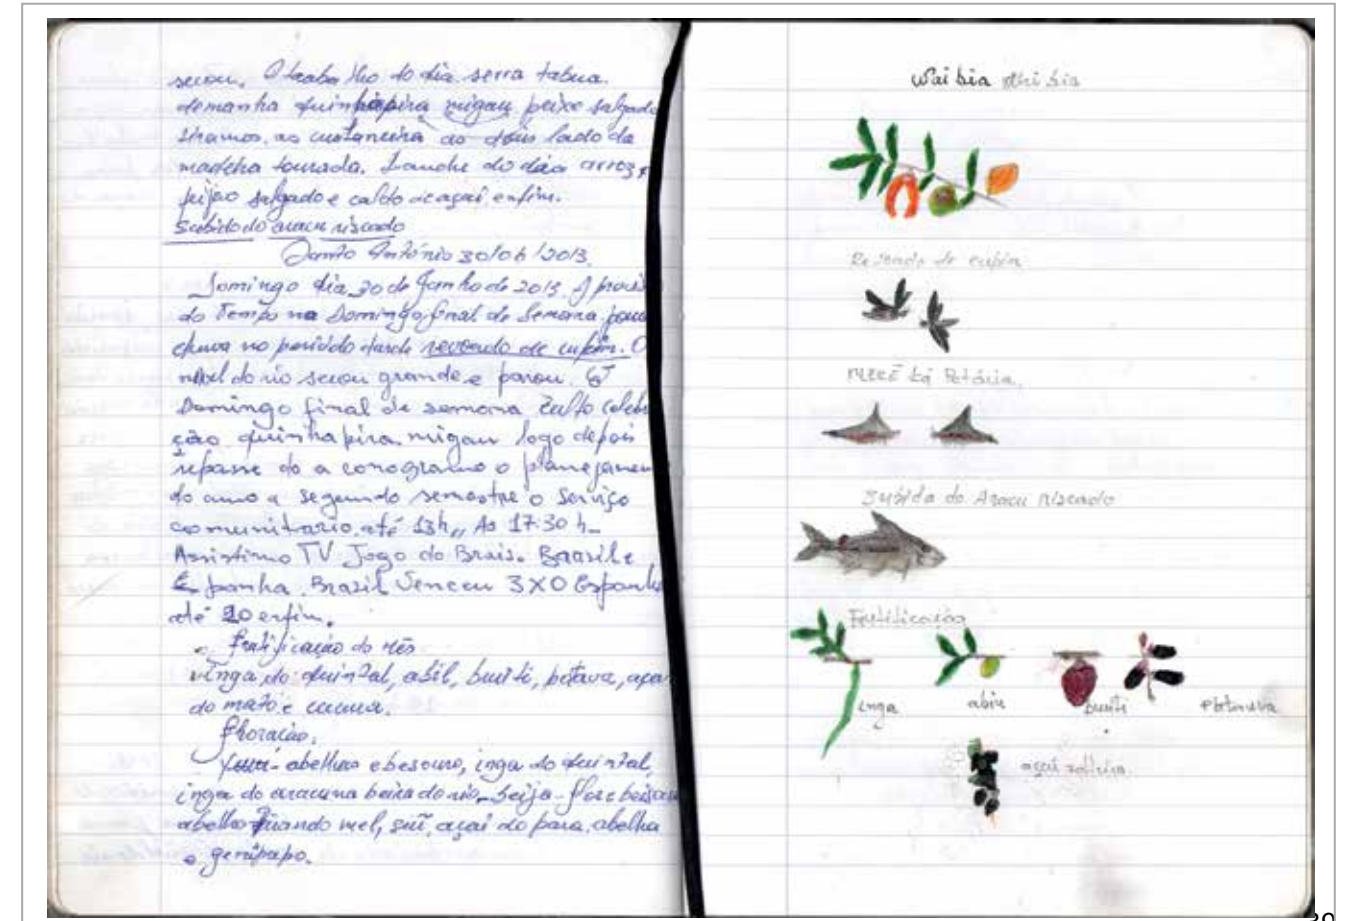 secou. O trabalho do dia serra tabua.
demanha quinhãpira migau peixe salgado
tiramos, as custaneira ao dois lado da
madeha tourada. Lanche do dia arroz,
feijão salgado e caldo de açaí enfim.
Subido do aracu riscado
Santo António 30/06/2013.
Domingo dia 30 de Junho de 2013. A previs
do Tempo na Domingo final de Semana pouc
chuva no período tarde revoado de cupim. O
nível do rio secou grande e parou.
Domingo final de semana culto celeb
ção quinhapira migau logo depois
repasse do a conograma o planejamen
do ano a segundo semestre o serviço
comunitario até 13h,, As 17:30 h_
Assistimo TV Jogo do Brais. Brasil e
Espanha. Brazil Venceu 3X0 Espanh
até 20 enfim.
frutificação do mês
inga do quintal, abil, buriti, petava, açaí
do mato e cucura.
floração.
- abelhas e besouro, inga do quintal,
inga do aracuna beira do rio, beija-flor e
abelha quando mel, açai do para abelha
genipapo.
Wai bia
Revoado de cupim
Subida do Aracu riscado
Frutificação
inga
abiu
buriti
açai
30